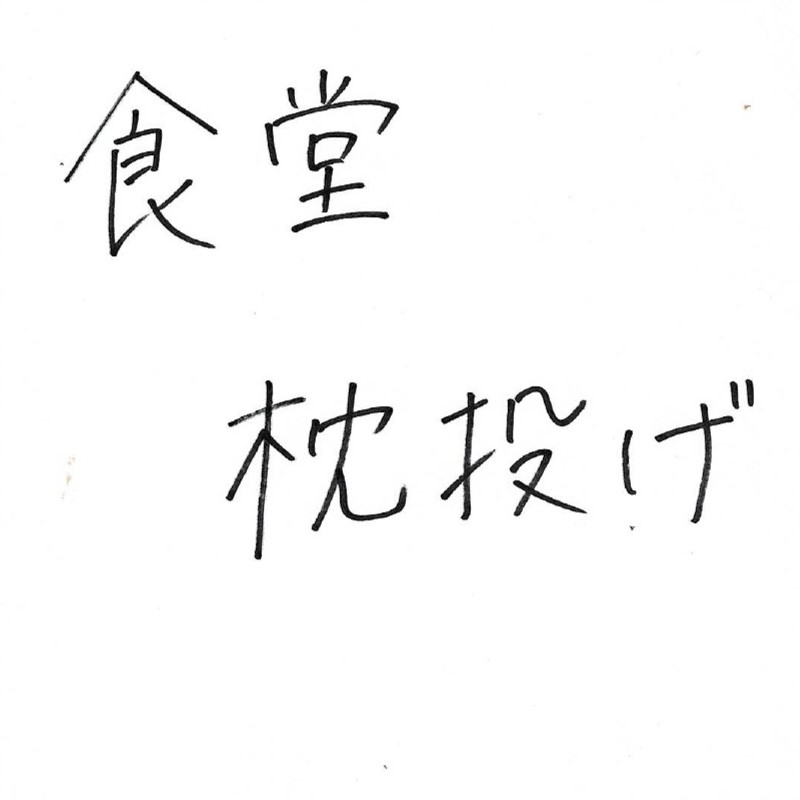 食堂
枕投げ